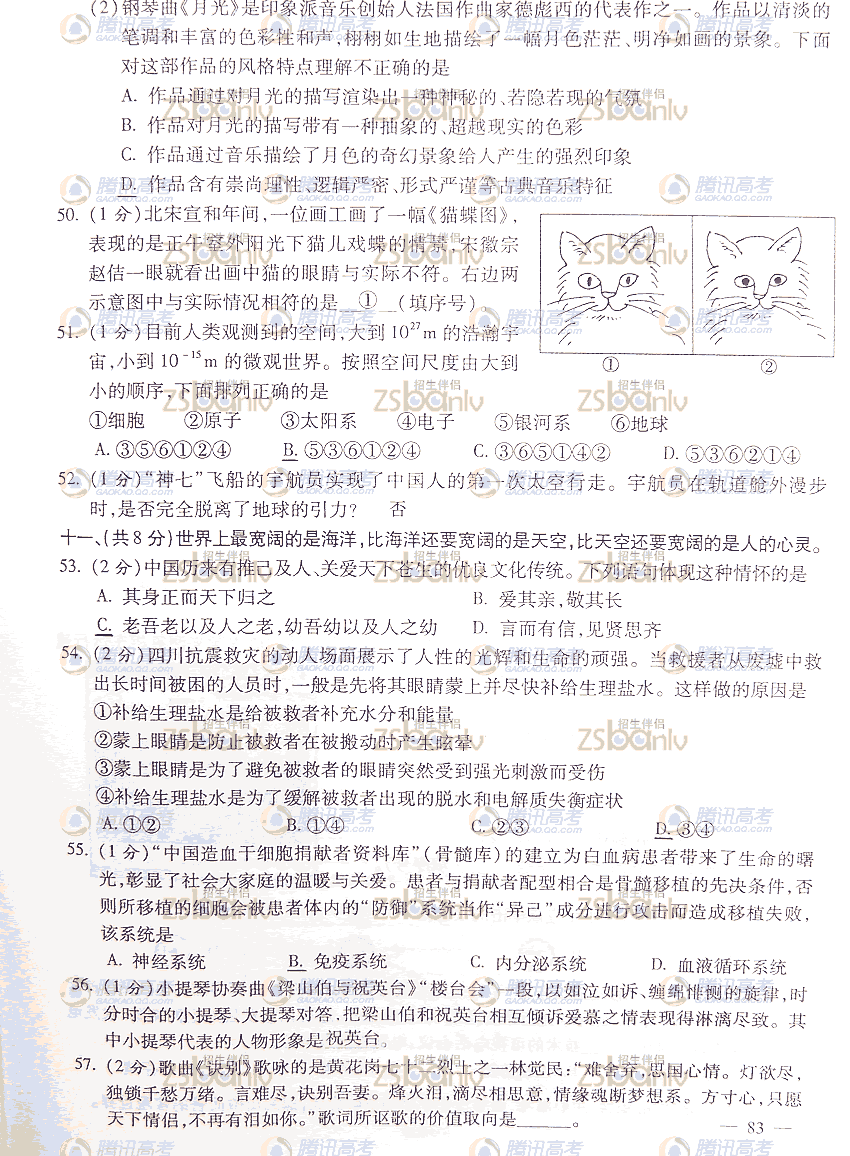 (2)钢琴曲《月光》是印象派音乐创始人法国作曲家德彪西的代表作之一。作品以清淡的
笔调和丰富的色彩性和声,栩栩如生地描绘了一幅月色茫茫、明净如画的景象。下面
对这部作品的风格特点理解不正确的是
A. 作品通过对月光的描写渲染出一种神秘的、若隐若现的气氛
B. 作品对月光的描写带有一种抽象的、超越现实的色彩
C. 作品通过音乐描绘了月色的奇幻景象给人产生的强烈印象
D. 作品含有崇尚理性、逻辑严密、形式严谨等古典音乐特征
50. (1分)北宋宣和年间,一位画工画了一幅《猫蝶图》,
表现的是正午室外阳光下猫儿戏蝶的情景,宋徽宗
赵佶一眼就看出画中猫的眼睛与实际不符。右边两
示意图中与实际情况相符的是 ① (填序号)。
① ②
51. (1分)目前人类观测到的空间,大到10²⁷m的浩瀚宇
宙,小到10⁻¹⁵m的微观世界。按照空间尺度由大到
小的顺序,下面排列正确的是
①细胞 ②原子 ③太阳系 ④电子 ⑤银河系 ⑥地球
A. ③⑤⑥①②④ B. ⑤③⑥①②④ C. ③⑥⑤①④② D. ⑤③⑥②①④
52. (1分)“神七”飞船的宇航员实现了中国人的第一次太空行走。宇航员在轨道舱外漫步
时,是否完全脱离了地球的引力? 否
十一、(共8分)世界上最宽阔的是海洋,比海洋还要宽阔的是天空,比天空还要宽阔的是人的心灵。
53. (2分)中国历来有推己及人、关爱天下苍生的优良文化传统。下列语句体现这种情怀的是
A. 其身正而天下归之 B. 爱其亲,敬其长
C. 老吾老以及人之老,幼吾幼以及人之幼 D. 言而有信,见贤思齐
54. (2分)四川抗震救灾的动人场面展示了人性的光辉和生命的顽强。当救援者从废墟中救
出长时间被困的人员时,一般是先将其眼睛蒙上并尽快补给生理盐水。这样做的原因是
①补给生理盐水是给被救者补充水分和能量
②蒙上眼睛是防止被救者在被搬动时产生眩晕
③蒙上眼睛是为了避免被救者的眼睛突然受到强光刺激而受伤
④补给生理盐水是为了缓解被救者出现的脱水和电解质失衡症状
A. ①② B. ①④ C. ②③ D. ③④
55. (1分)“中国造血干细胞捐献者资料库”(骨髓库)的建立为白血病患者带来了生命的曙
光,彰显了社会大家庭的温暖与关爱。患者与捐献者配型相合是骨髓移植的先决条件,否
则所移植的细胞会被患者体内的“防御”系统当作“异己”成分进行攻击而造成移植失败,
该系统是
A. 神经系统 B. 免疫系统 C. 内分泌系统 D. 血液循环系统
56. (1分)小提琴协奏曲《梁山伯与祝英台》“楼台会”一段,以如泣如诉、缠绵悱恻的旋律,时
分时合的小提琴、大提琴对答,把梁山伯和祝英台相互倾诉爱慕之情表现得淋漓尽致。其
中小提琴代表的人物形象是祝英台。
57. (2分)歌曲《诀别》歌咏的是黄花岗七十二烈士之一林觉民:“难舍弃,思国心情。灯欲尽,
独锁千愁万绪。言难尽,诀别吾妻。烽火泪,滴尽相思意,情缘魂断梦想系。方寸心,只愿
天下情侣,不再有泪如你。”歌词所讴歌的价值取向是______。
— 83 —
腾讯高考
GAOKAO.QQ.COM
招生伴侣
zsbanlv